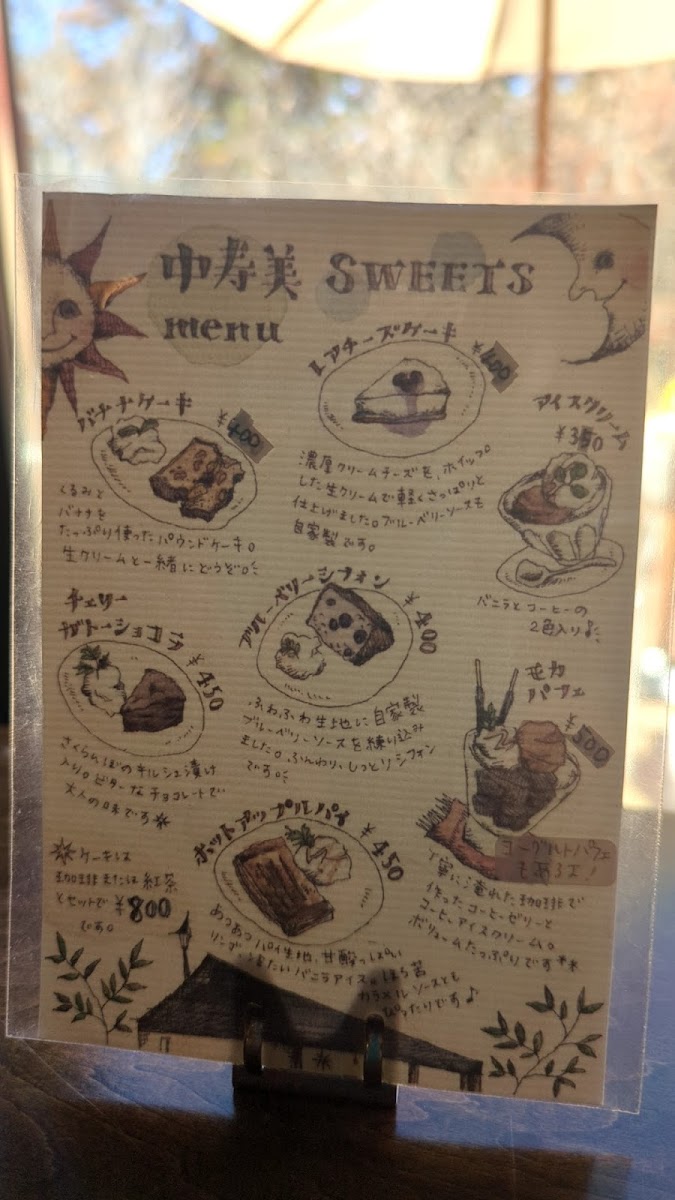 中寿美 SWEETS
menu
レアチーズケーキ
¥400
濃厚クリームチーズを、ホイップ
した生クリームで軽くさっぱりと
仕上げました。ブルーベリーソースも
自家製です。
バナナケーキ
¥400
くるみと
バナナを
たっぷり使ったパウンドケーキ。
生クリームと一緒にどうぞ。
アイスクリーム
¥350
バニラとコーヒーの
2色入り♪
ブルーベリーシフォン
¥400
ふわふわ生地に自家製
ブルーベリーソースを練り込み
ました。ふんわり、しっとりシフォン
です。
チェリー
ガトーショコラ
¥450
さくらんぼのキルシュ漬け
入り。ビターなチョコレートで
大人の味です
パフェ
¥500
ヨーグルトパフェ
もあるよ!
丁寧に淹れた珈琲で
作ったコーヒーゼリーと
コーヒーアイスクリーム。
ボリュームたっぷりです
ホットアップルパイ
¥450
あつあつパイ生地、甘酸っぱい
リンゴ、冷たいバニラアイス。ほろ苦
カラメルソースとも
ぴったりです♪
ケーキは
珈琲または紅茶
とセットで ¥800
です。